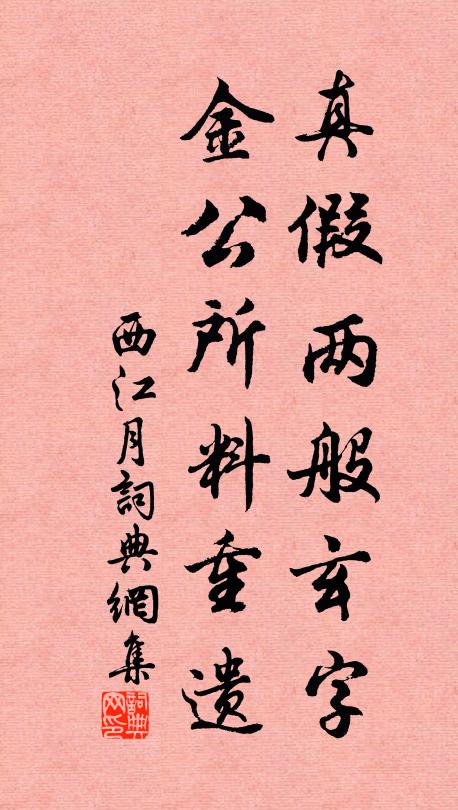 真假两般玄字
金公所料重遗
西江月詞典網集
詞典网印